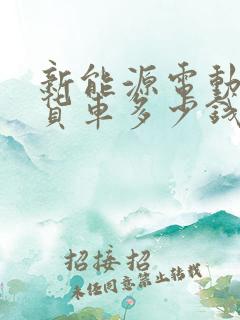 新能源電動
貨車多少錢
招接招
未任同意第止转载